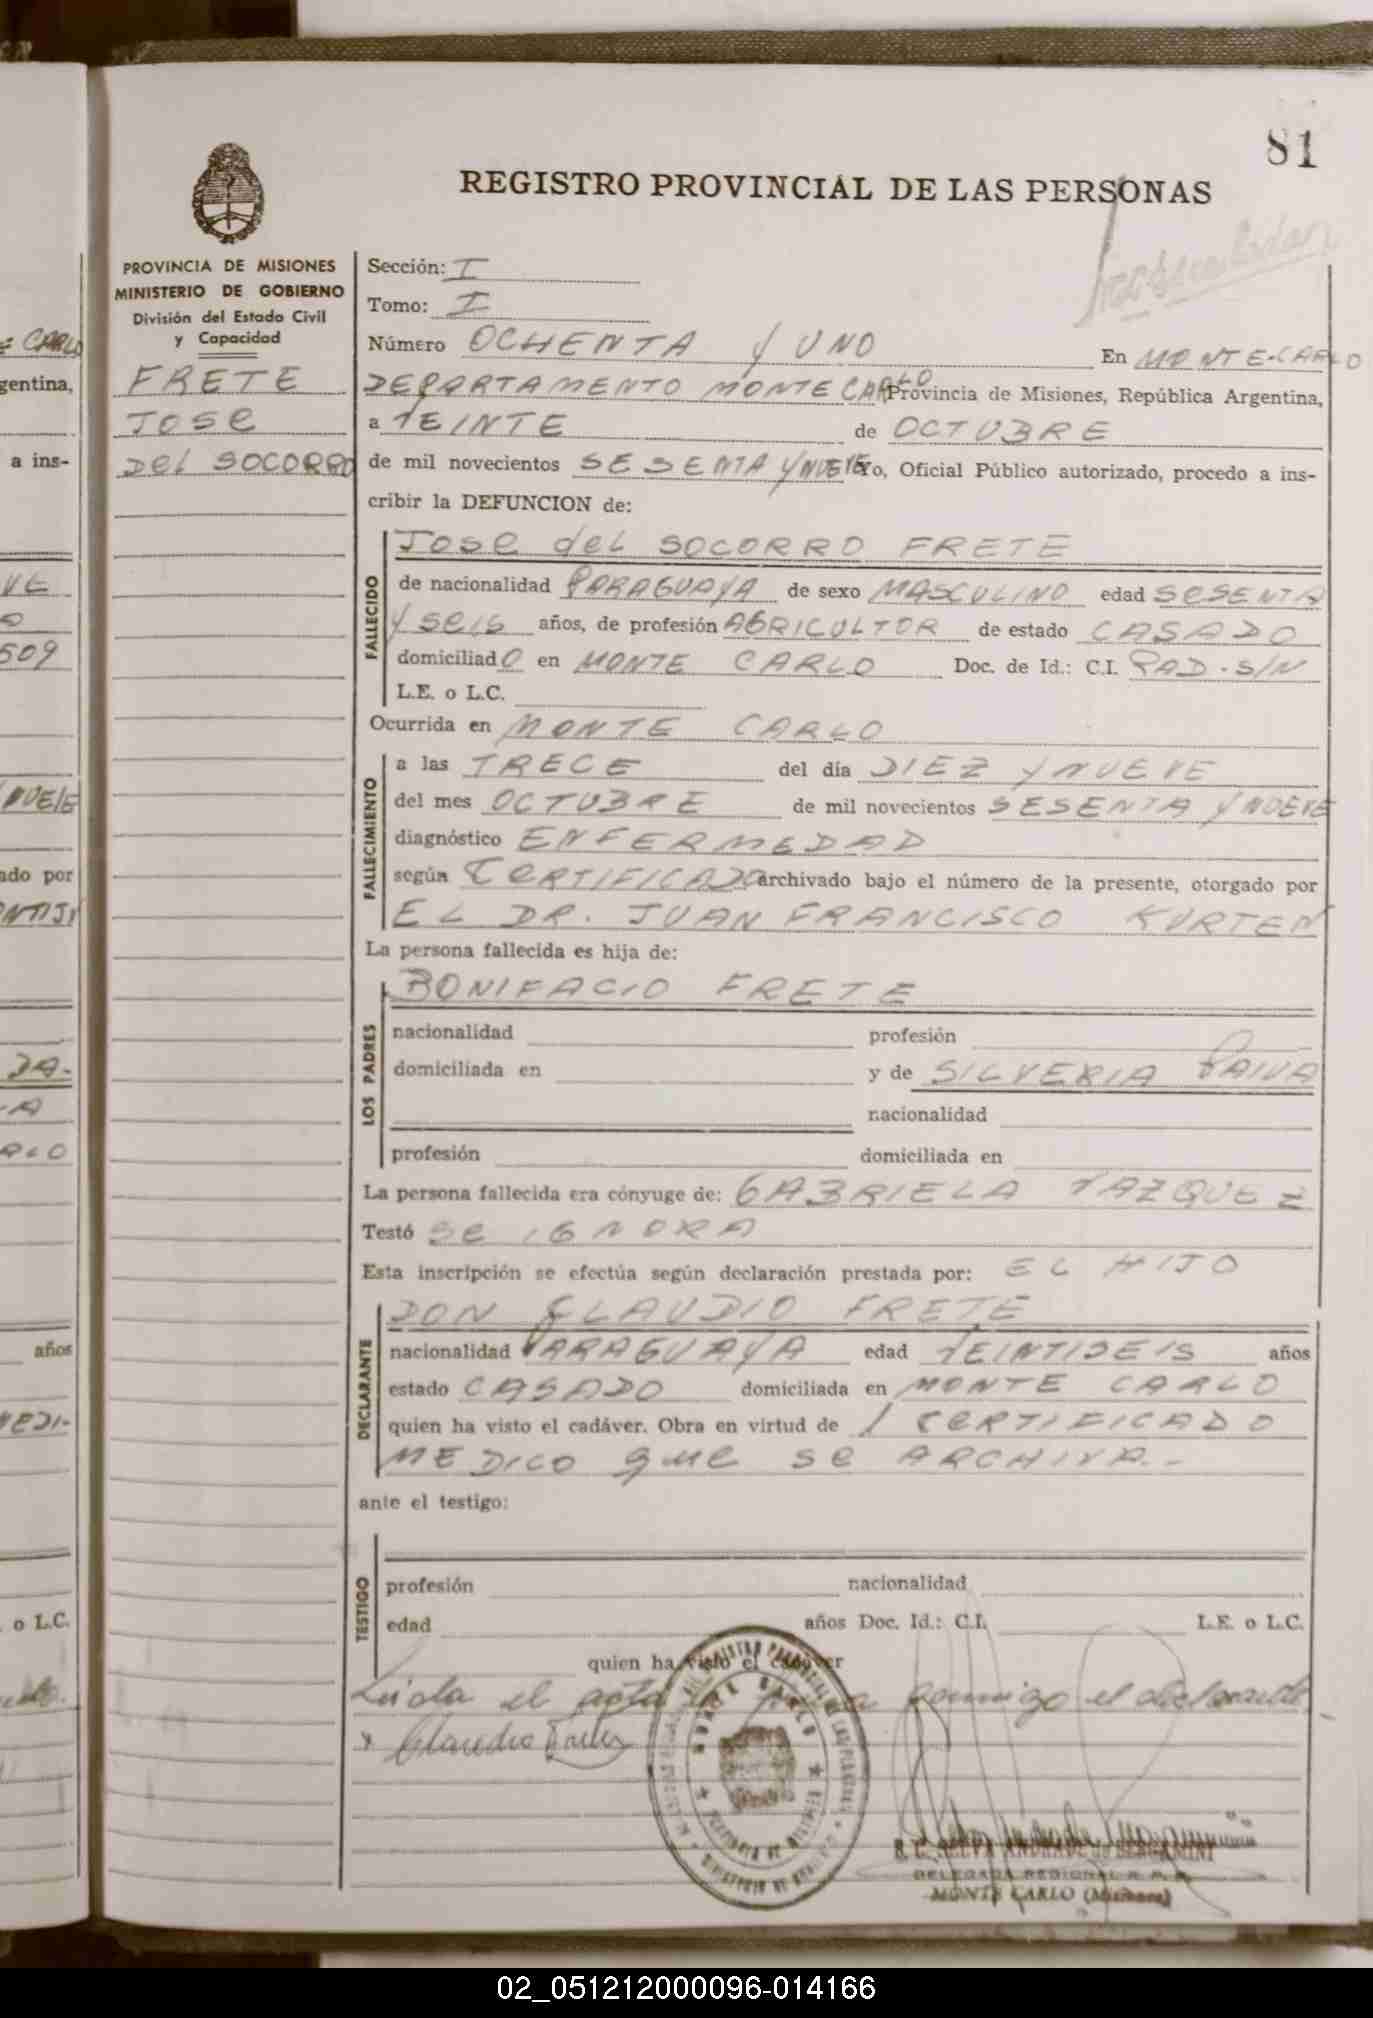 81
REGISTRO PROVINCIAL DE LAS PERSONAS
PROVINCIA DE MISIONES
MINISTERIO DE GOBIERNO
División del Estado Civil
y Capacidad
FRETE
JOSE
DEL SOCORRO
Sección: I
Tomo: I
Número OCHENTA Y UNO En MONTE-CARLO
DEPARTAMENTO MONTE CARLO Provincia de Misiones, República Argentina,
a VEINTE de OCTUBRE
de mil novecientos SESENTA Y NUEVE Yo, Oficial Público autorizado, procedo a ins-
cribir la DEFUNCION de:
FALLECIDO
JOSE del SOCORRO FRETE
de nacionalidad PARAGUAYA de sexo MASCULINO edad SESENTA
Y SEIS años, de profesión AGRICULTOR de estado CASADO
domiciliadO en MONTE CARLO Doc. de Id.: C.I. RAD-S/N
L.E. o L.C.
Ocurrida en MONTE CARLO
FALLECIMIENTO
a las TRECE del día DIEZ Y NUEVE
del mes OCTUBRE de mil novecientos SESENTA Y NUEVE
diagnóstico ENFERMEDAD
según CERTIFICADO archivado bajo el número de la presente, otorgado por
EL DR. JUAN FRANCISCO KURTEN
La persona fallecida es hija de:
LOS PADRES
BONIFACIO FRETE
nacionalidad profesión
domiciliada en y de SILVERIA PAIVA
nacionalidad
profesión domiciliada en
La persona fallecida era cónyuge de: GABRIELA VAZQUEZ
Testó SE IGNORA
Esta inscripción se efectúa según declaración prestada por: EL HIJO
DECLARANTE
DON CLAUDIO FRETE
nacionalidad PARAGUAYA edad VEINTISEIS años
estado CASADO domiciliada en MONTE CARLO
quien ha visto el cadáver. Obra en virtud de 1 CERTIFICADO
MEDICO que se ARCHIVA.-
ante el testigo:
TESTIGO
profesión nacionalidad
edad años Doc. Id.: C.I. L.E. o L.C.
quien ha visto el cadáver
Leida el acta la firma conmigo el declarante
Claudio Frete
MONTE CARLO
SELVA ANDRADE de BERGAMINI
DELEGADA REGIONAL R.P.P.
MONTE CARLO (Misiones)
02_051212000096-014166